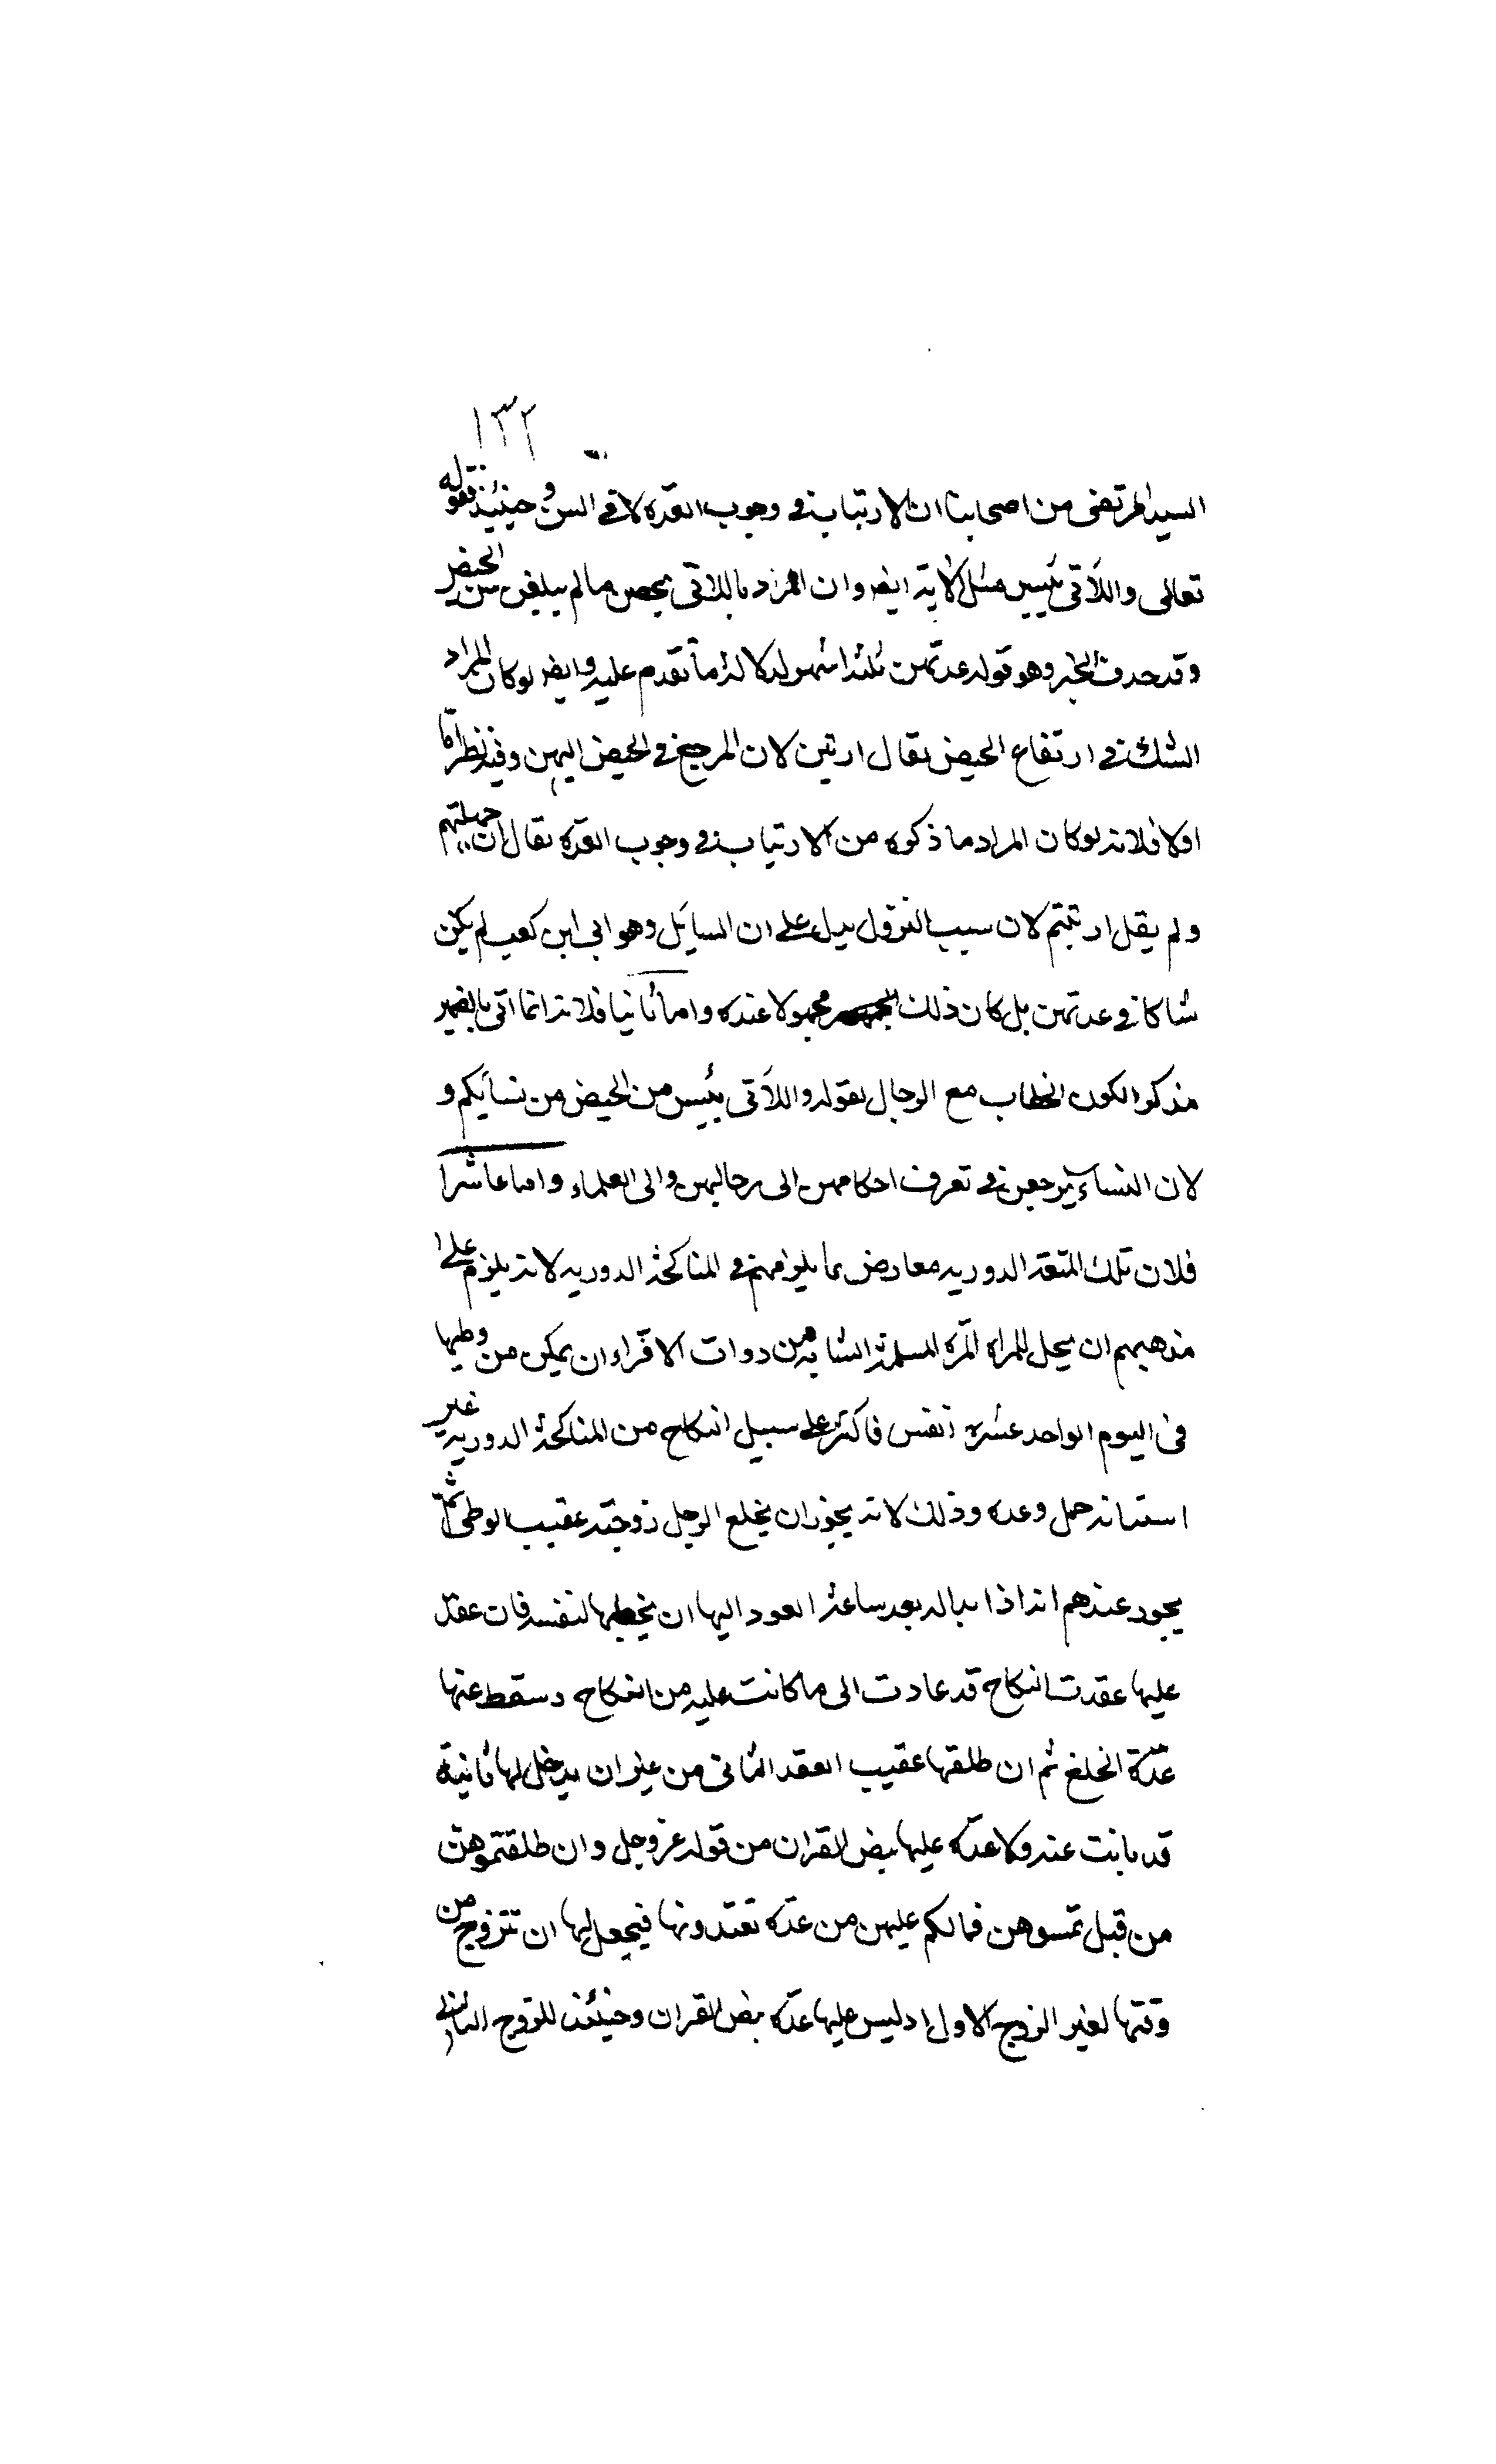 ١٣٢
السيد المرتضى من اصحابنا ان الارتياب فى وجوب العدة لا فى السن وحينئذ فقوله
تعالى واللاتى يئسن مثل الاية ايضا وان المراد باللاتى يحضن ما لم يبلغن سن الحيض
وقد حذف الخبر وهو قوله عدتهن ثلثة اشهر لدلالة ما تقدم عليه وايضا لو كان المراد
الشك فى ارتفاع الحيض لقال ارتبن لان المرجع فى الحيض اليهن وفيه نظر اما
اولا فلانه لو كان المراد ما ذكره من الارتياب فى وجوب العدة لقال ان جهلتم
ولم يقل ارتبتم لان سبب النزول يدل على ان السايل وهو ابى ابن كعب لم يكن
شاكا فى عدتهن بل كان ذلك مجهولا عنده واما ثانيا فلانه انما اتى بالضمير
مذكرا لكون الخطاب مع الرجال لقوله واللاتى يئسن من المحيض من نسائكم و
لان النساء يرجعن فى تعرف احكامهن الى رجالهن والى العلماء واما عاشرا
فلان تلك المتعة الدورية معارض بما يلزمهم فى المناكحة الدورية لانه يلزم على
مذهبهم ان يحل للمراة الحرة المسلمة الشابة من ذوات الاقراء ان يمكن من وطيها
فى اليوم الواحد عشرة انفس فاكثر على سبيل النكاح من المناكحة الدورية غير
استبانة حمل وعدة وذلك لانه يجوز ان يخلع الرجل زوجته عقيب الوطى ثم
يجوز عندهم انه اذا بدا له بعد ساعة العود اليها ان يخطبها لنفسه فان عقد
عليها عقدة النكاح قد عادت الى ما كانت عليه من النكاح وسقط عنها
عدة الخلع ثم ان طلقها عقيب العقد الثانى من غير ان يدخل بها ثانية
قد بانت عنه ولا عدة عليها بنص القران من قوله عز وجل وان طلقتموهن
من قبل تمسوهن فمالكم عليهن من عدة تعتدونها فيحل لها ان تتزوج من
وقتها لغير الزوج الاول اذ ليس عليها عدة بنص القران وحينئذ للزوج الثانى